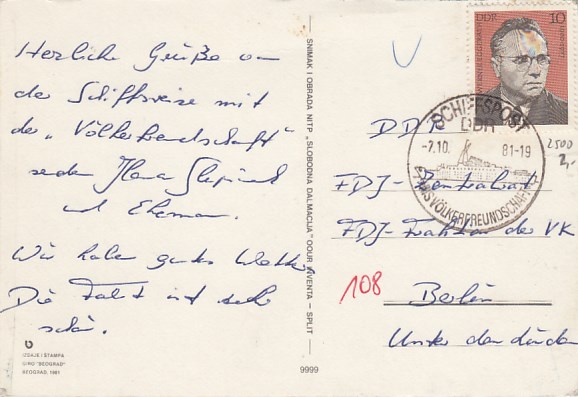 Herzliche Grüße von
der Schiffsreise mit
der „Völkerfreundschaft“
senden
und Ehemann.
Wir haben gutes Wetter.
Die Fahrt ist sehr
schön.
IZDAJE I ŠTAMPA
"BEOGRAD"
BEOGRAD, 1981
SNIMAK I OBRADA NITP „SLOBODNA DALMACIJA" OOUR - SPLIT
9999
DDR
10
SCHIFFSPOST
DDR
-7.10. 81-19
MS VÖLKERFREUNDSCHAFT
2500
DDR
FDJ-Zentralrat
FDJ-Fraktion der VK
108
Berlin
Unter den Linden